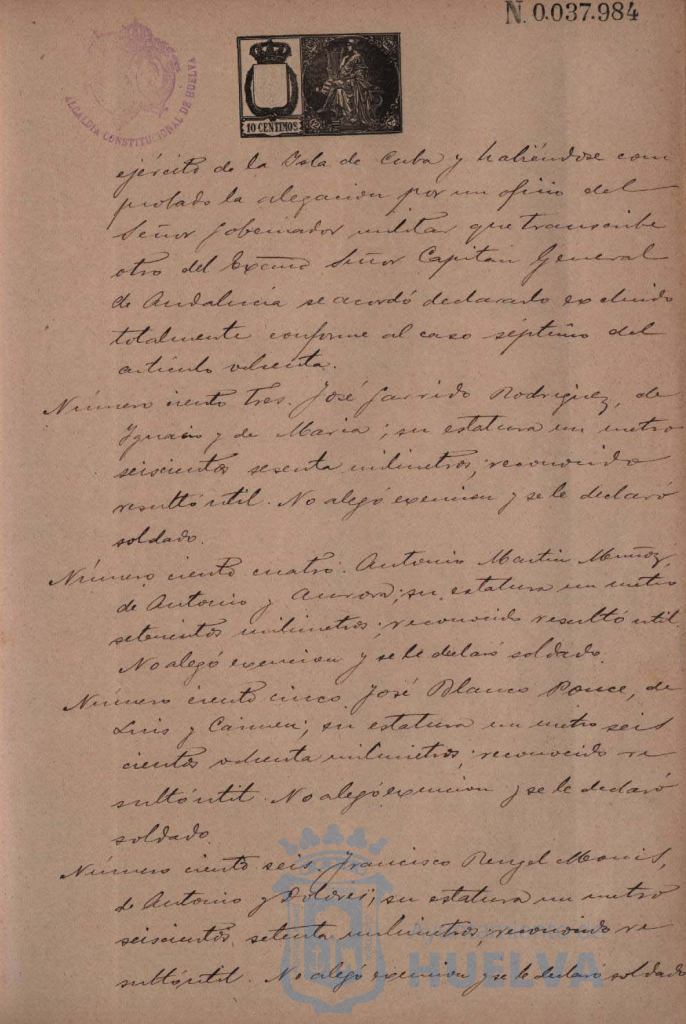 N. 0.037.984
ALCALDIA CONSTITUCIONAL DE HUELVA
10 CENTIMOS
ejército de la Isla de Cuba y habiéndose com
probado la alegacion por un oficio del
Señor Gobernador militar que transcribe
otro del Excmo Señor Capitán General
de Andalucia se acordó declararlo excluido
totalmente conforme al caso séptimo del
artículo ochenta.
Número ciento tres. José Garrido Rodriguez, de
Ignacio y de Maria; su estatura un metro
seiscientos sesenta milimetros; reconocido
resultó util. No alegó exencion y se le declaró
soldado.
Número ciento cuatro. Antonio Martin Muñoz,
de Antonio y Aurora; su estatura un metro
setecientos milimetros; reconocido resultó util.
No alegó exencion y se le declaró soldado.
Número ciento cinco. José Blanco Ponce, de
Luis y Carmen; su estatura un metro seis
cientos ochenta milimetros; reconocido re
sultó util. No alegó exencion y se le declaró
soldado.
Número ciento seis. Francisco Rengel
de Antonio y Dolores; su estatura un metro
seiscientos setenta milimetros; reconocido re
sultó util. No alegó exencion y se le declaró soldado
HUELVA